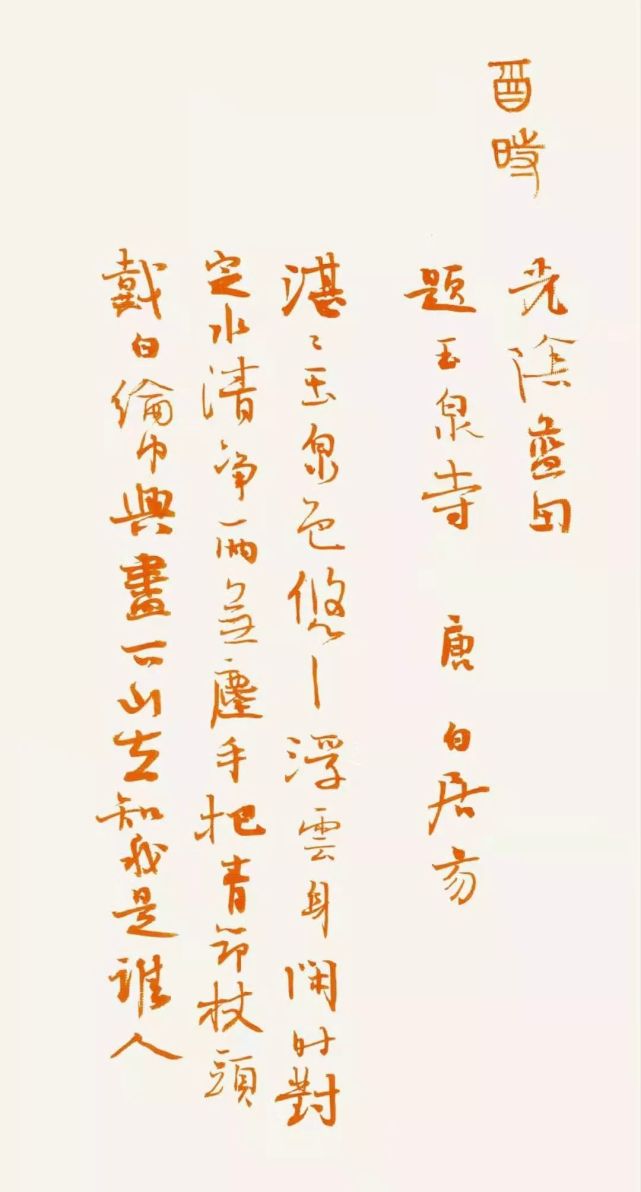 酉時
光陰藍田
題玉泉寺 唐 白居易
湛〻玉泉色悠〻浮雲身閑时對
定水清净兩無塵手把青筇杖頭
戴白綸巾興盡下山去知我是誰人